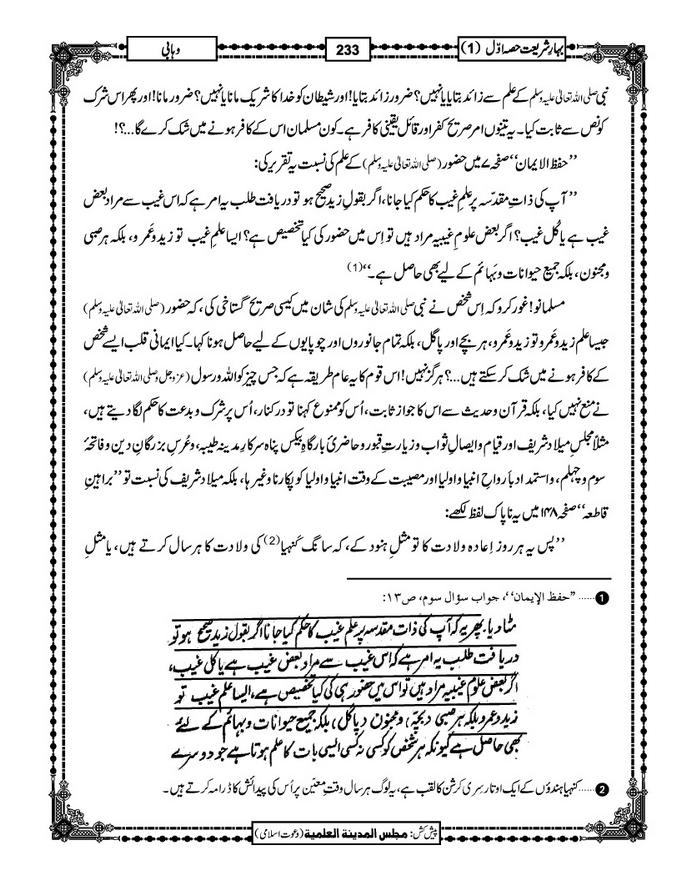 بہارِ شریعت حصہ اوّل (1)
233
وہابی
نبی صلی اللہ تعالیٰ علیہ وسلم کے علم سے زائد بتایا یا نہیں؟ ضرور زائد بتایا! اور شیطان کو خدا کا شریک مانا یا نہیں؟ ضرور مانا! اور پھر اس شرک
کو نص سے ثابت کیا۔ یہ تینوں امر صریح کفر اور قائل یقینی کافر ہے۔ کون مسلمان اس کے کافر ہونے میں شک کرے گا...؟!
’’حفظ الایمان‘‘ صفحہ ۷ میں حضور (صلی اللہ تعالیٰ علیہ وسلم) کے علم کی نسبت یہ تقریر کی:
’’آپ کی ذاتِ مقدّسہ پر علمِ غیب کا حکم کیا جانا، اگر بقولِ زید صحیح ہو تو دریافت طلب یہ امر ہے کہ اس غیب سے مراد بعض
غیب ہے یا کُل غیب؟ اگر بعض علومِ غیبیہ مراد ہیں تو اِس میں حضور کی کیا تخصیص ہے؟ ایسا علمِ غیب تو زید و عَمرو، بلکہ ہر صبی
و مجنون، بلکہ جمیع حیوانات و بَہائم کے لیے بھی حاصل ہے۔‘‘ (1)
مسلمانو! غور کرو کہ اِس شخص نے نبی صلی اللہ تعالیٰ علیہ وسلم کی شان میں کیسی صریح گستاخی کی، کہ حضور (صلی اللہ تعالیٰ علیہ وسلم)
جیسا علم زید و عَمرو تو زید و عَمرو، ہر بچے اور پاگل، بلکہ تمام جانوروں اور چوپایوں کے لیے حاصل ہونا کہا۔ کیا ایمانی قلب ایسے شخص
کے کافر ہونے میں شک کر سکتے ہیں...؟ ہرگز نہیں! اس قوم کا یہ عام طریقہ ہے کہ جس چیز کو اللہ و رسول (عزوجل وصلی اللہ تعالیٰ علیہ وسلم)
نے منع نہیں کیا، بلکہ قرآن و حدیث سے اس کا جواز ثابت، اُس کو ممنوع کہنا تو درکنار، اُس پر شرک و بدعت کا حکم لگا دیتے ہیں،
مثلاً مجلسِ میلاد شریف اور قیام و ایصالِ ثواب و زیارتِ قبور و حاضریٔ بارگاہِ بیکس پناہ سرکارِ مدینہ طیبہ، و عُرسِ بزرگانِ دین و فاتحۂ
سوم و چہلم، و استمداد بأرواحِ انبیا و اولیا اور مصیبت کے وقت انبیا و اولیا کو پکارنا وغیرہا، بلکہ میلاد شریف کی نسبت تو ’’براہینِ
قاطعہ‘‘ صفحہ ۱۴۸ میں یہ ناپاک لفظ لکھے:
’’پس یہ ہر روز اِعادہ ولادت کا تو مثلِ ہنود کے، کہ سانگ کَنہیا (2) کی ولادت کا ہر سال کرتے ہیں، یا مثلِ
1 ...... ’’حفظ الإیمان‘‘، جواب سؤال سوم، ص۱۳:
مٹا دیا۔ پھر یہ کہ آپ کی ذات مقدسہ پر علم غیب کا حکم کیا جانا اگر بقول زید صحیح ہو تو
دریافت طلب یہ امر ہے کہ اس غیب سے مراد بعض غیب ہے یا کل غیب،
اگر بعض علوم غیبیہ مراد ہیں تو اس میں حضور ہی کی کیا تخصیص ہے، ایسا علم غیب تو
زید و عمرو بلکہ ہر صبی (بچہ) و مجنون (پاگل) بلکہ جمیع حیوانات و بہائم کے لئے
بھی حاصل ہے کیونکہ ہر شخص کو کسی نہ کسی ایسی بات کا علم ہوتا ہے جو دوسرے
2 ...... کنہیا ہندوؤں کے ایک اوتار سِری کرشن کا لقب ہے، یہ لوگ ہر سال وقتِ معیّن پر اُس کی پیدائش کا ڈرامہ کرتے ہیں۔
پیش کش: مجلس المدینة العلمیة (دعوتِ اسلامی)